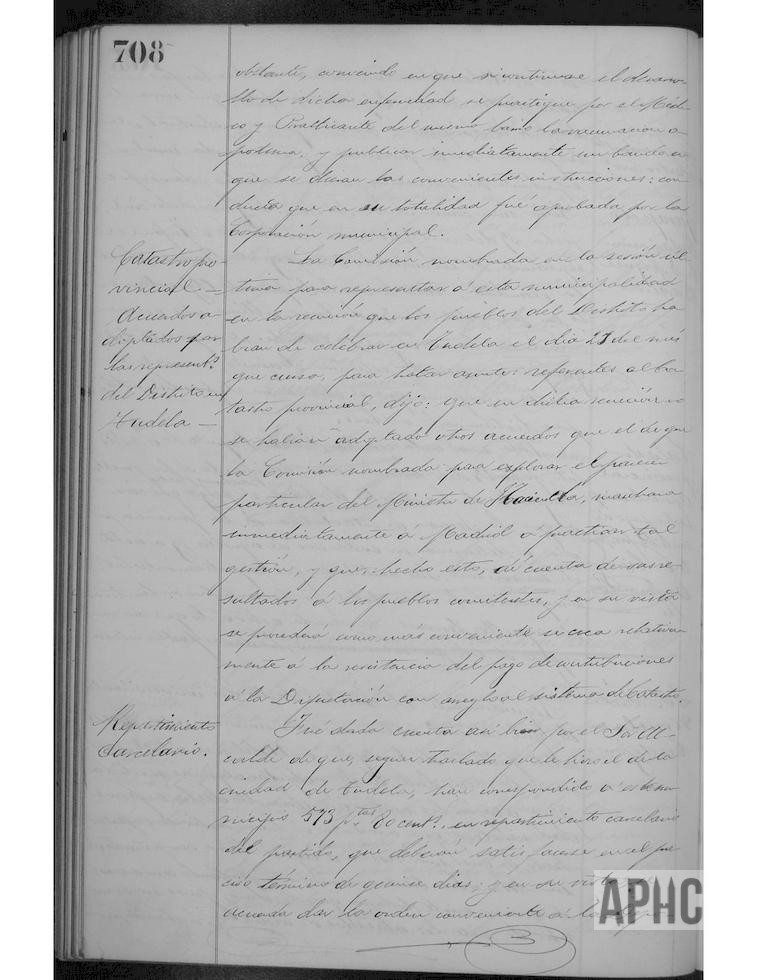 708
obstante, conviniendo en que si continuase el desarro-
llo de dicha enfermedad se practique por el Médi-
co y Practicante del mismo la vacunación
y publicar inmediatamente un bando en
que se dieran las convenientes instrucciones: con-
ducta que en su totalidad fué aprobada por la
Corporación municipal.
Catastro pro-
vincial —
Acuerdos a-
doptados por
los represent.s
del Distrito en
Tudela —
La Comisión nombrada en la sesión úl-
tima para representar á esta municipalidad
en la reunión que los pueblos del Distrito ha-
bían de celebrar en Tudela el día 27 del mes
que cursa, para tratar asuntos referentes al Ca-
tastro provincial, dijo: que en dicha reunión no
se habían adoptado otros acuerdos que el de que
la Comisión nombrada para explorar el parecer
particular del Ministro de Hacienda, marchara
inmediatamente á Madrid á practicar tal
gestión, y que, hecho esto, dé cuenta de sus re-
sultados á los pueblos comitentes, y en su vista
se procederá como más conveniente se crea relativa-
mente á la resistencia del pago de contribuciones
á la Diputación con arreglo al sistema de Catastro.
Repartimiento
Carcelario.
Fué dada cuenta así bien por el Sor Al-
calde de que, según traslado que le hizo el de la
ciudad de Tudela, han correspondido á este mu-
nicipio 573 ptas 80 cents., en repartimiento carcelario
del partido, que deberán satisfacerse en el pre-
ciso término de quince días; y en su vista se
acuerda dar la orden conveniente á la Depo-
APHC